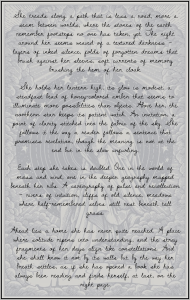 She treads along a path that is less a road, more a
seam between worlds, where the stones of the earth
remember footsteps no one has taken yet. The night
around her seems woven of a textured darkness –
layers of inked silence, folds of forgotten dreams that
brush against her sleeves, soft currents of memory
brushing the hem of her cloak.
She holds her lantern high, its glow a modest, a
steadfast kind of honeycombed amber that seems to
illuminate more possibilities than objects. Above her, the
nameless star keeps its patient watch. An invitation, a
point of clarity stitched into the fabric of the sky. She
follows it the way a reader follows a sentence that
promises revelation, though the meaning is not at the
end but in the slow unfolding.
Each step she takes is doubled. One in the world of
moss and wind, one in the deeper geography mapped
beneath her ribs. A cartography of pulses and recollection
– rivers of intuition, cliffs of old silence, meadows
where half-remembered wishes still rest beneath tall
grass.
Ahead lies a home she has never quite reached. A place
where solitude ripens into understanding, and the stray
fragments of her days align like constellations. And
she shall know it not by its walls but by the way her
breath settles, as if she has opened a book she has
always been reading and finds herself, at last, on the
right page.